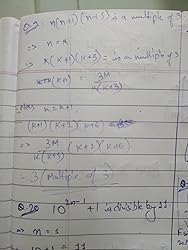 Q.9 n(n+1)(n+5) is a multiple of 3
⇒ n = k
⇒ k(k+1)(k+5) = is a multiple of 3
k(k+1) = 3M / k(k+3)
n = k+1,
(k+1)(k+2) k+6
⇒ 3M / k(k+3) (k+2) k+6
= 3 (Multiple of 3)
Q.20 10²ⁿ⁻¹ + 1 is divisible by 11
⇒ n = 1
= 11